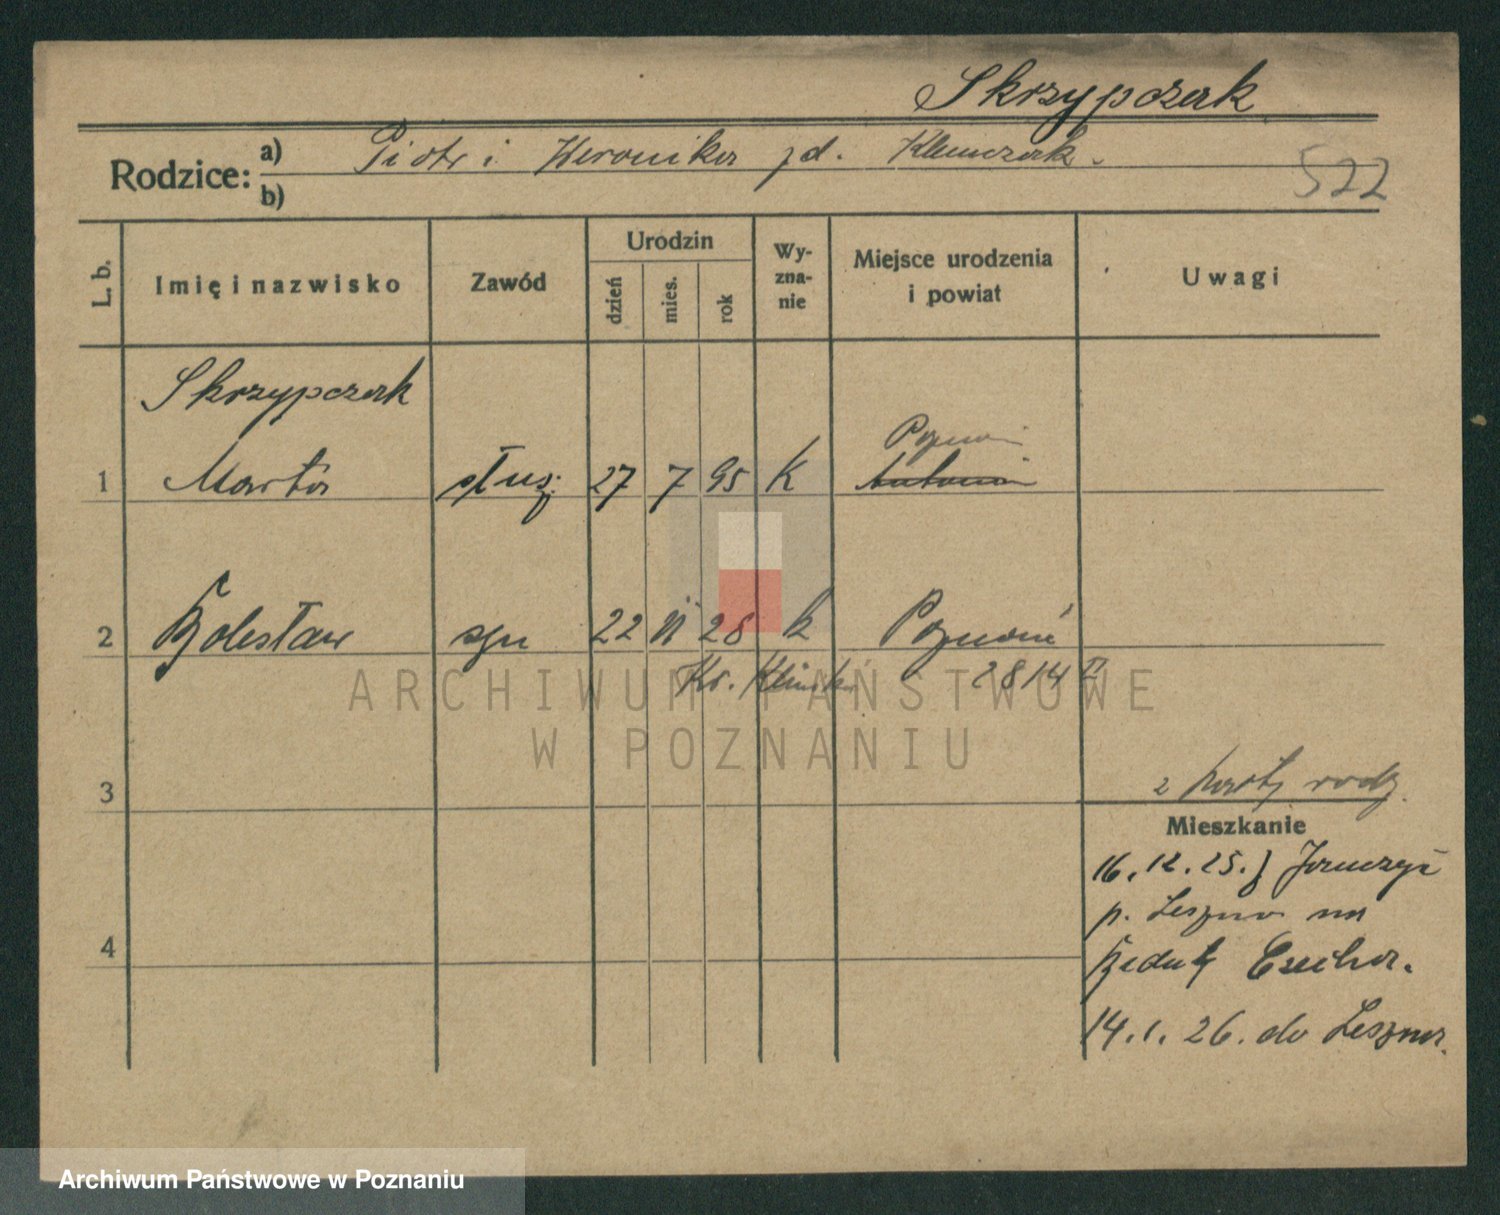 Skrzypczak
Rodzice: a) Piotr i Weronika zd. Klemczak.
b)
522
L. b.
Imię i nazwisko
Zawód
Urodzin
dzień
mies.
rok
Wy-
zna-
nie
Miejsce urodzenia
i powiat
Uwagi
Skrzypczak
Poznań
1 Marta służ. 27 7 95 K
2 Bolesław syn 22 28 k Poznań
Kr. 2814 II
ARCHIWUM PAŃSTWOWE
W POZNANIU
3
z karty rodz.
Mieszkanie
16. 12. 25.
p. Leszno na
4
14. 1. 26. do Leszna.
Archiwum Państwowe w Poznaniu